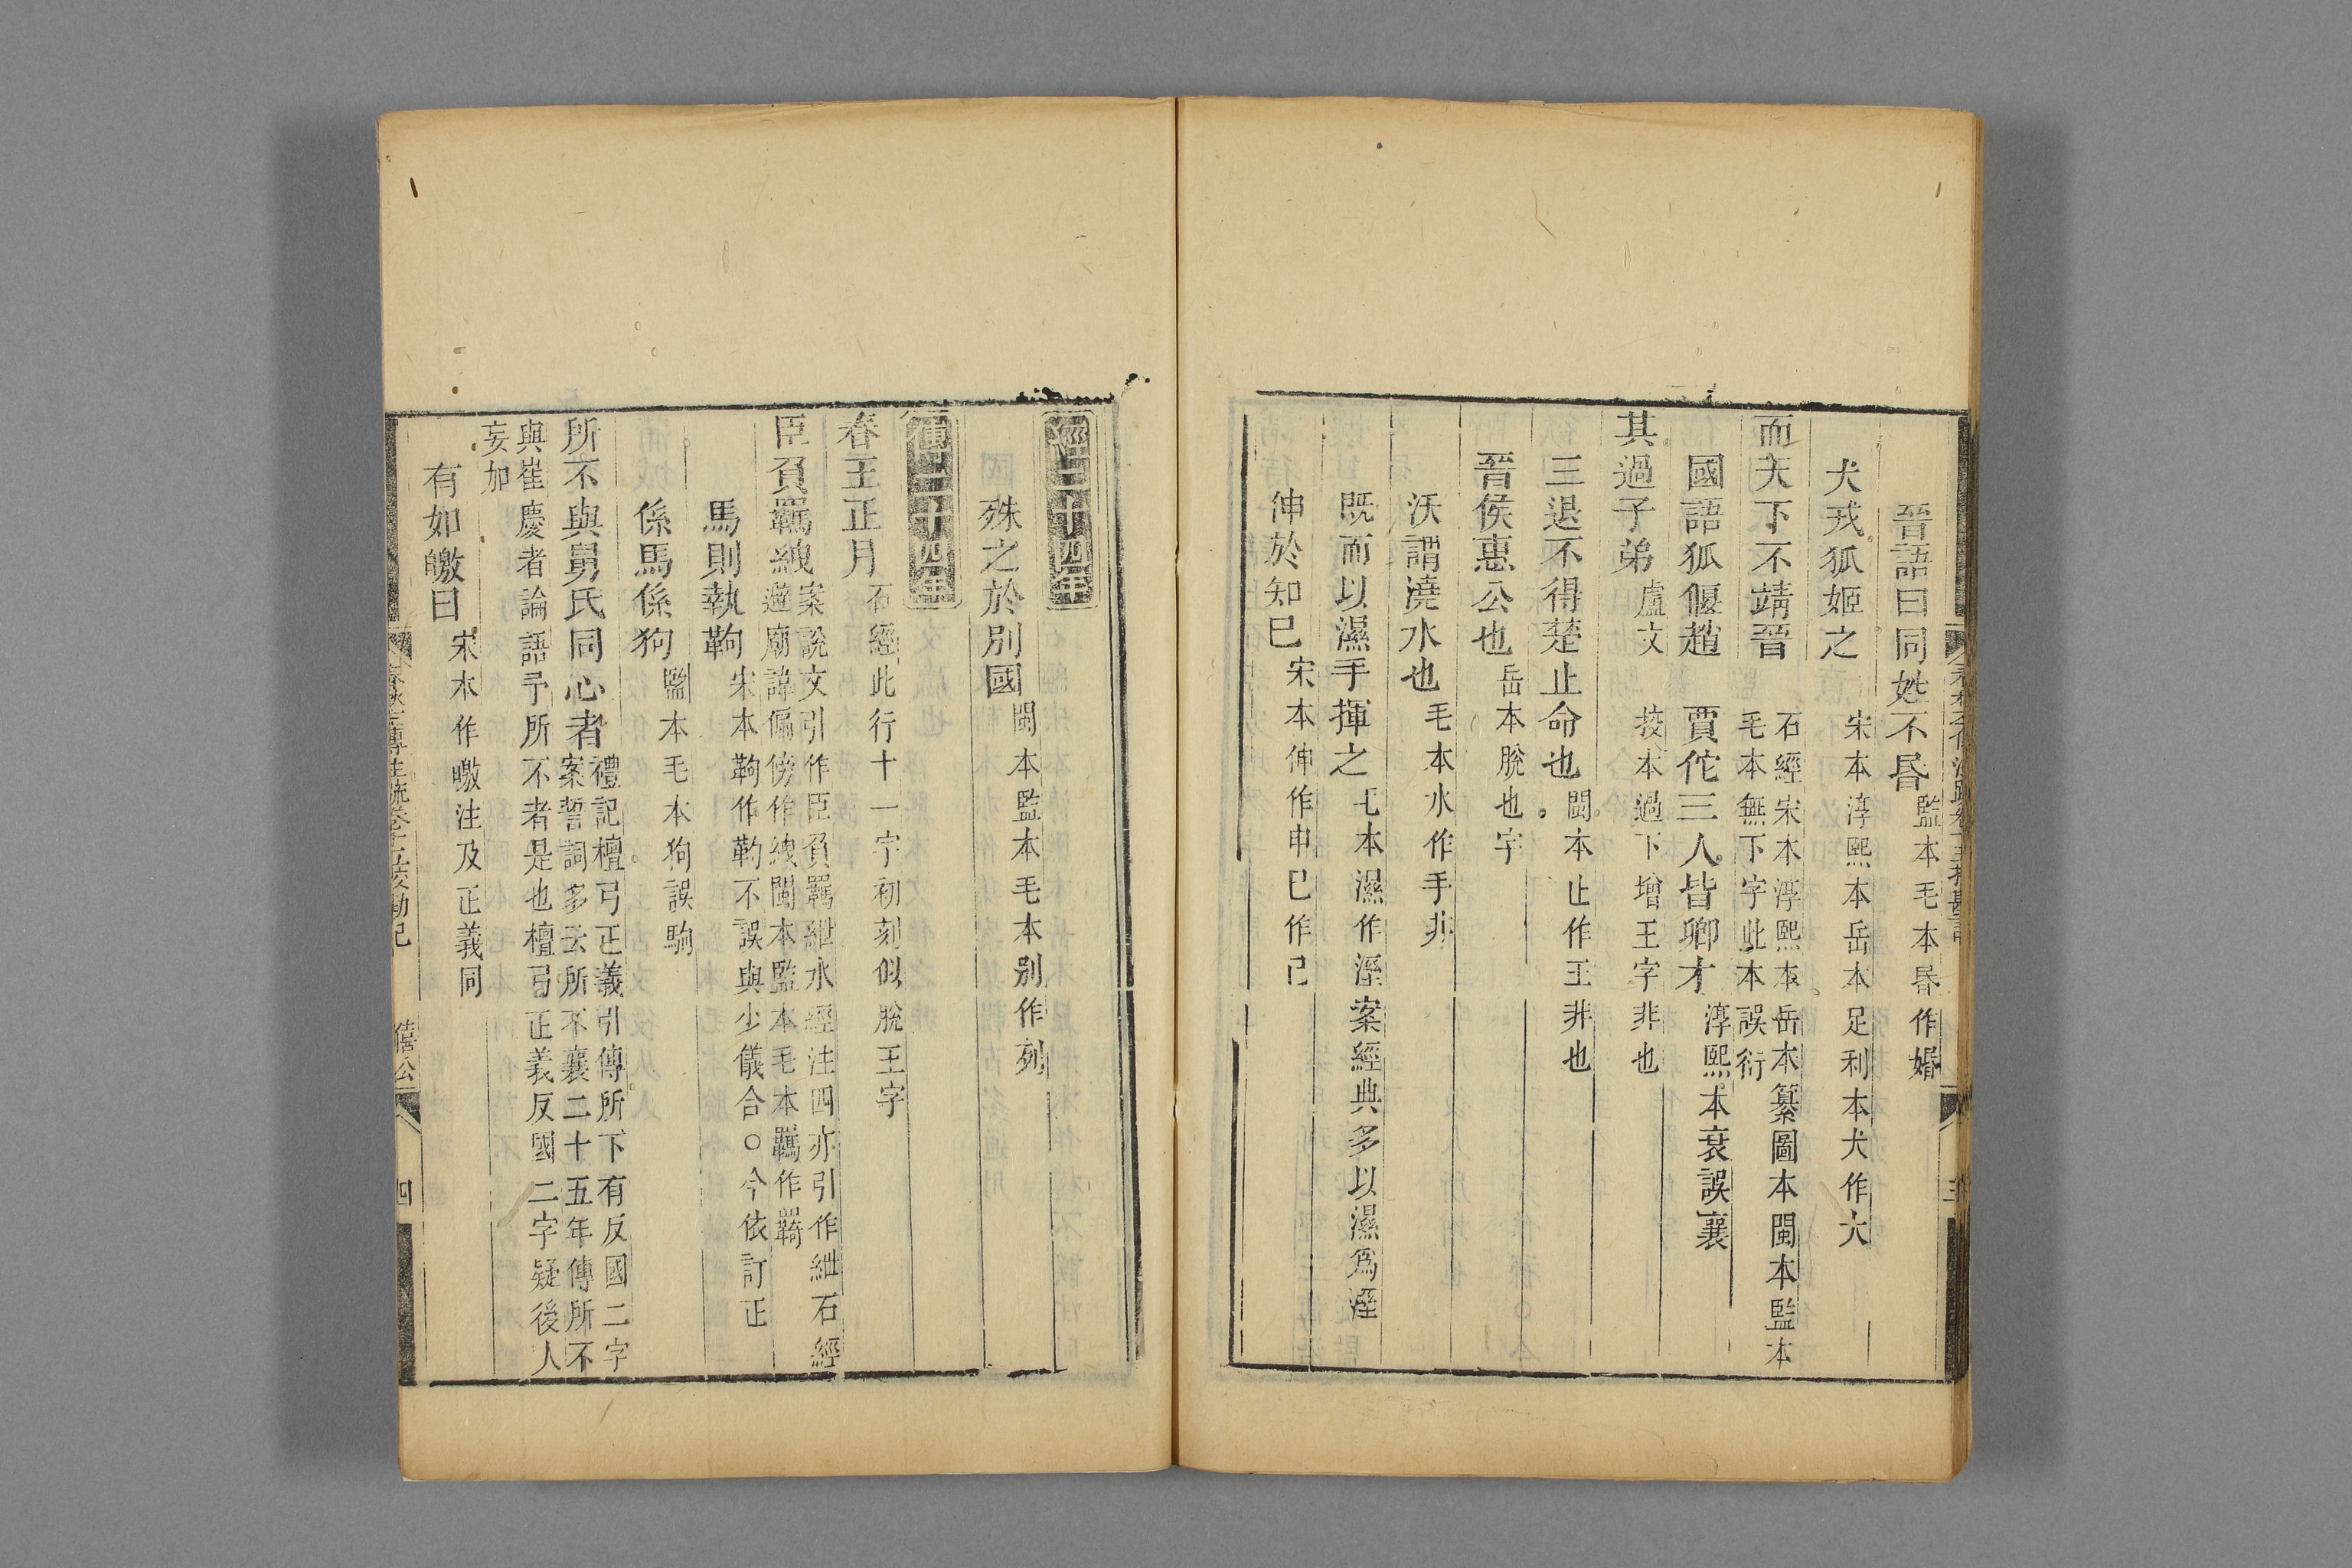 晉語曰同姓不昏監本毛本昏作婚
犬戎狐姬之宋本淳熙本岳本足利本犬作大
而天下不靖晉石經宋本淳熙本岳本纂圖本閩本監本
毛本無下字此本誤衍
國語狐偃趙賈佗三人皆卿才淳熙本衰誤襄
其過子弟盧文挍本過下增王字非也
三退不得楚止命也閩本止作王非也
晉侯惠公也岳本脫也字
沃謂澆水也毛本水作手非
既而以濕手揮之毛本濕作溼案經典多以濕爲溼
伸於知己宋本伸作申己作已
春秋左傳注疏卷十五校勘記
三
經二十四年
殊之於別國閩本監本毛本別作列
傳二十四年
春王正月石經此行十一字初刻似脫王字
臣負羈絏案說文引作臣負羈紲水經注四亦引作紲石經
避廟諱偏傍作絏閩本監本毛本羈作羇
馬則執靮宋本靮作勒不誤與少儀合○今依訂正
係馬係狗監本毛本狗誤駒
所不與舅氏同心者禮記檀弓正義引傳所下有反國二字
案誓詞多云所不襄二十五年傳所不
與崔慶者論語予所不者是也檀弓正義反國二字疑後人
妄加
有如皦曰宋本作曒注及正義同
春秋左傳注疏卷十五校勘記
僖公
四